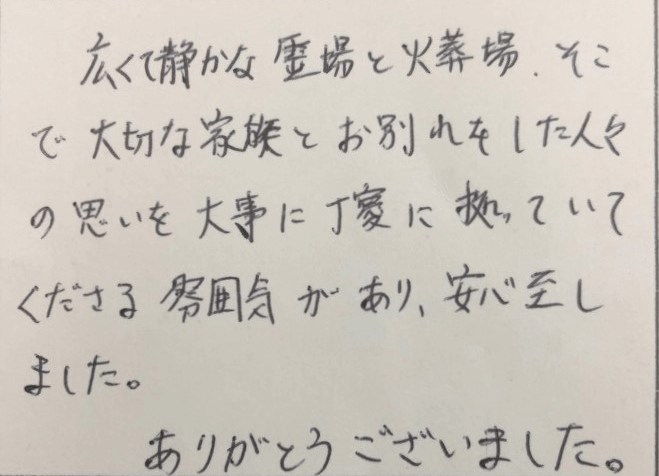 広くて静かな霊場と火葬場、そこ
で大切な家族とお別れをした人々
の思いを大事に丁寧に扱っていて
くださる雰囲気があり、安心致し
ました。
ありがとうございました。